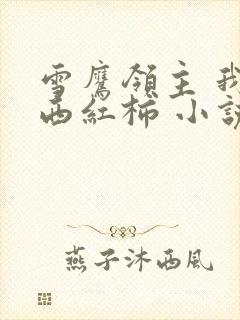 雪鷹領主 我
西紅柿 小說
燕子沐西風